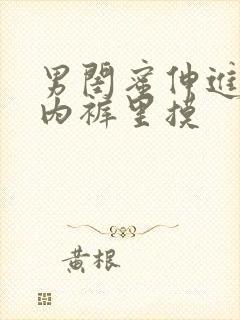 男闺蜜伸进
内裤里摸
黄根